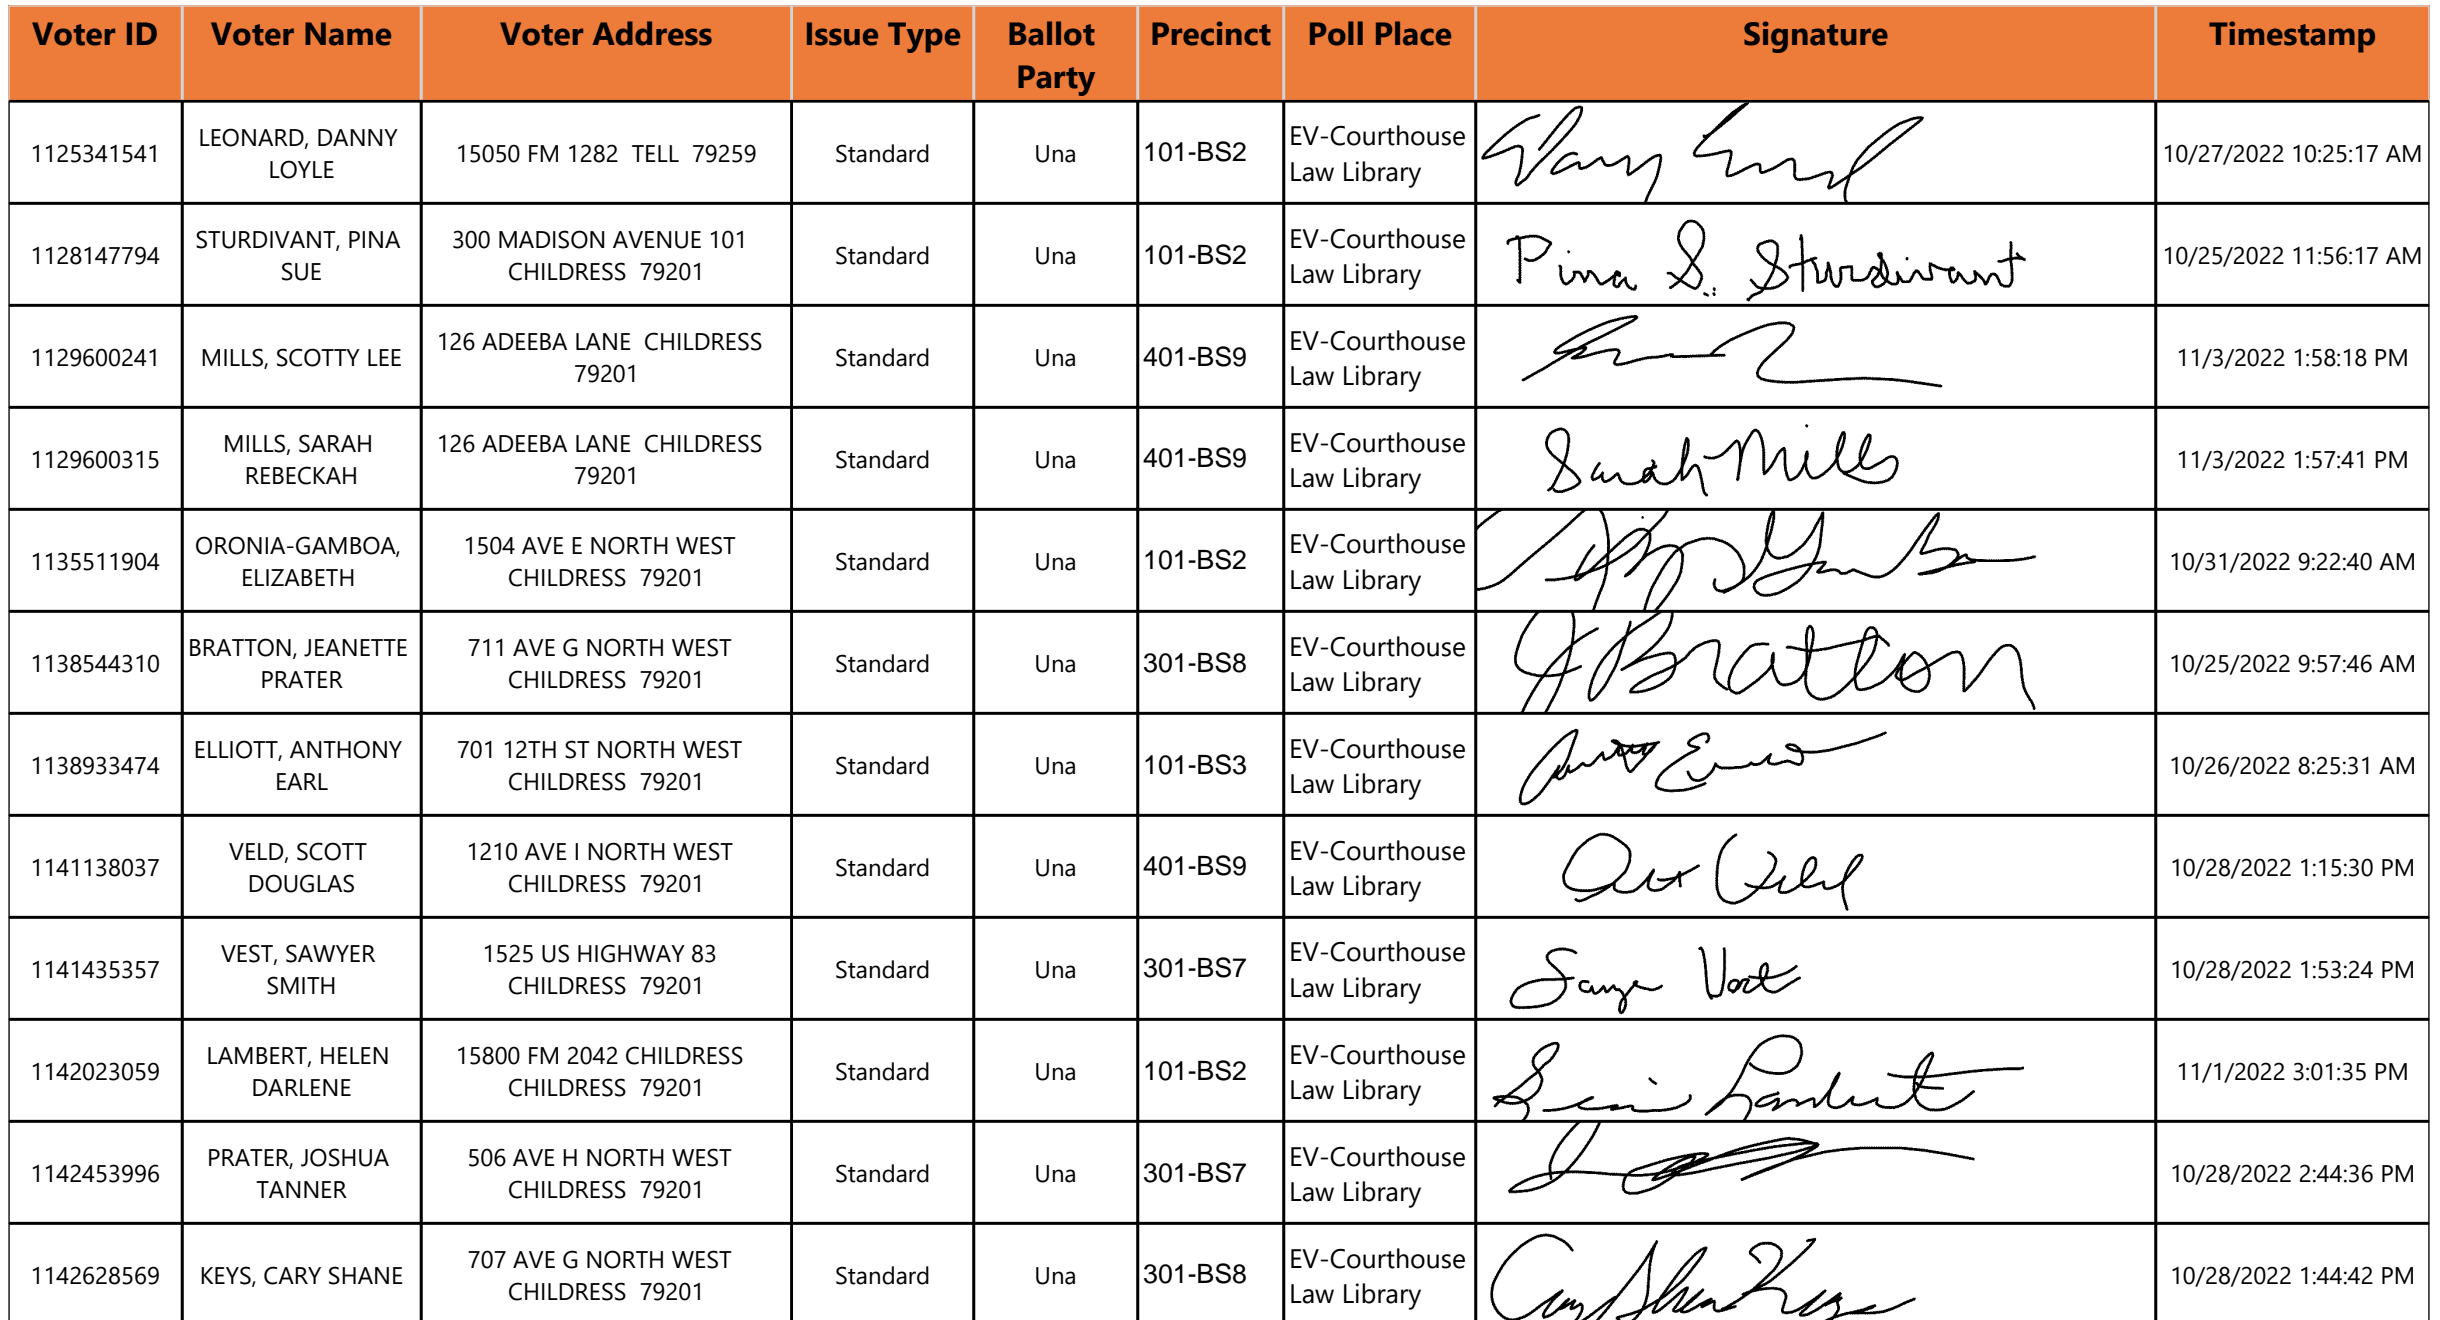 Voter ID Voter Name Voter Address Issue Type Ballot Party Precinct Poll Place Signature Timestamp
1125341541 LEONARD, DANNY LOYLE 15050 FM 1282 TELL 79259 Standard Una 101-BS2 EV-Courthouse Law Library 10/27/2022 10:25:17 AM
1128147794 STURDIVANT, PINA SUE 300 MADISON AVENUE 101 CHILDRESS 79201 Standard Una 101-BS2 EV-Courthouse Law Library Pina S. Sturdivant 10/25/2022 11:56:17 AM
1129600241 MILLS, SCOTTY LEE 126 ADEEBA LANE CHILDRESS 79201 Standard Una 401-BS9 EV-Courthouse Law Library 11/3/2022 1:58:18 PM
1129600315 MILLS, SARAH REBECKAH 126 ADEEBA LANE CHILDRESS 79201 Standard Una 401-BS9 EV-Courthouse Law Library Sarah Mills 11/3/2022 1:57:41 PM
1135511904 ORONIA-GAMBOA, ELIZABETH 1504 AVE E NORTH WEST CHILDRESS 79201 Standard Una 101-BS2 EV-Courthouse Law Library 10/31/2022 9:22:40 AM
1138544310 BRATTON, JEANETTE PRATER 711 AVE G NORTH WEST CHILDRESS 79201 Standard Una 301-BS8 EV-Courthouse Law Library J Bratton 10/25/2022 9:57:46 AM
1138933474 ELLIOTT, ANTHONY EARL 701 12TH ST NORTH WEST CHILDRESS 79201 Standard Una 101-BS3 EV-Courthouse Law Library 10/26/2022 8:25:31 AM
1141138037 VELD, SCOTT DOUGLAS 1210 AVE I NORTH WEST CHILDRESS 79201 Standard Una 401-BS9 EV-Courthouse Law Library 10/28/2022 1:15:30 PM
1141435357 VEST, SAWYER SMITH 1525 US HIGHWAY 83 CHILDRESS 79201 Standard Una 301-BS7 EV-Courthouse Law Library 10/28/2022 1:53:24 PM
1142023059 LAMBERT, HELEN DARLENE 15800 FM 2042 CHILDRESS CHILDRESS 79201 Standard Una 101-BS2 EV-Courthouse Law Library Lambert 11/1/2022 3:01:35 PM
1142453996 PRATER, JOSHUA TANNER 506 AVE H NORTH WEST CHILDRESS 79201 Standard Una 301-BS7 EV-Courthouse Law Library 10/28/2022 2:44:36 PM
1142628569 KEYS, CARY SHANE 707 AVE G NORTH WEST CHILDRESS 79201 Standard Una 301-BS8 EV-Courthouse Law Library 10/28/2022 1:44:42 PM